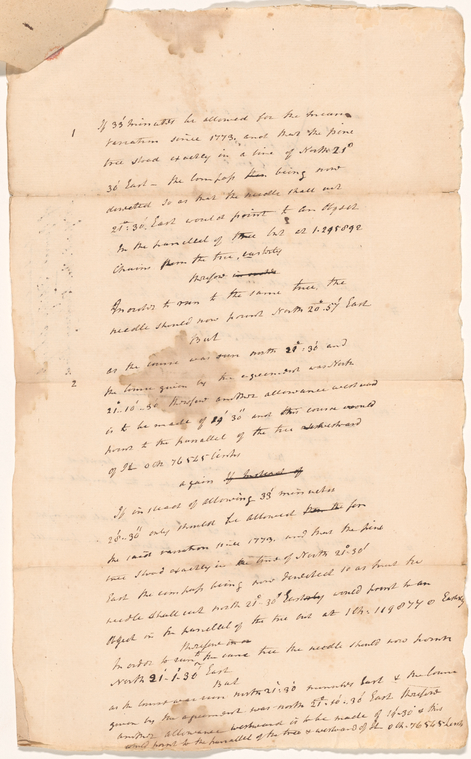 1 If 33' minutes be allowed for the
variation since 1773, and that the pine
tree stood exactly in a line of North 21°
30' East – the compass then being now
directed so as that the needle shall cut
21°:30' East would point to an Object
In the parrellel of tree but at 1.295892
Chains from the tree, easterly
therefore
In order to run to the same tree, the
needle should now point North 20°.57' East
But
2 as the course was run north 21°:30' and
the course given by the agreement was North
21°.10'-30" therefore another allowance westward
is to be made of 19' 30" and this course would
point to the parrallel of the tree westward
of It 0 Ch. 76545 links
again If Instead of
If instead of allowing 33' minnutes
28'-30" only, should be allowed for
the said variation since 1773, and that the pine
tree stood exactly in the line of North 21°-30'
East the compass being now directed so as that the
needle shall cut north 21°-30' Easterly would point to an
Object in the parrellel of the tree but at 1 Ch: 119877 0 Easterly
therefore
In order to run to the same tree the needle should now point
North 21°.1'.30" East
But
as the course was run north 21°:30' minnutes East & the Course
given by the agreement was north 21°.10'-30" East therefore
another allowance westward is to be made of 19'-30" & this
would point to the parrallel of the tree & westward of It 0 Ch. 76545 Links